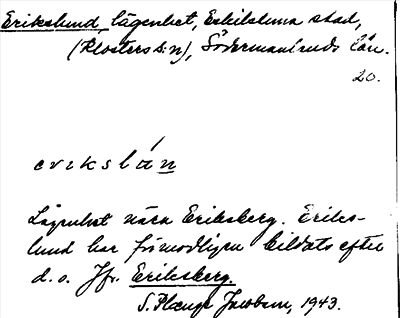 Erikslund, lägenhet, Eskilstuna stad,
(Klosters s:n), Södermanlands län.
20.
erikslán
Lägenhet nära Eriksberg. Eriks-
lund har förmodligen bildats efter
d. o. Jfr. Eriksberg.
S. Plænge Jacobson, 1943.